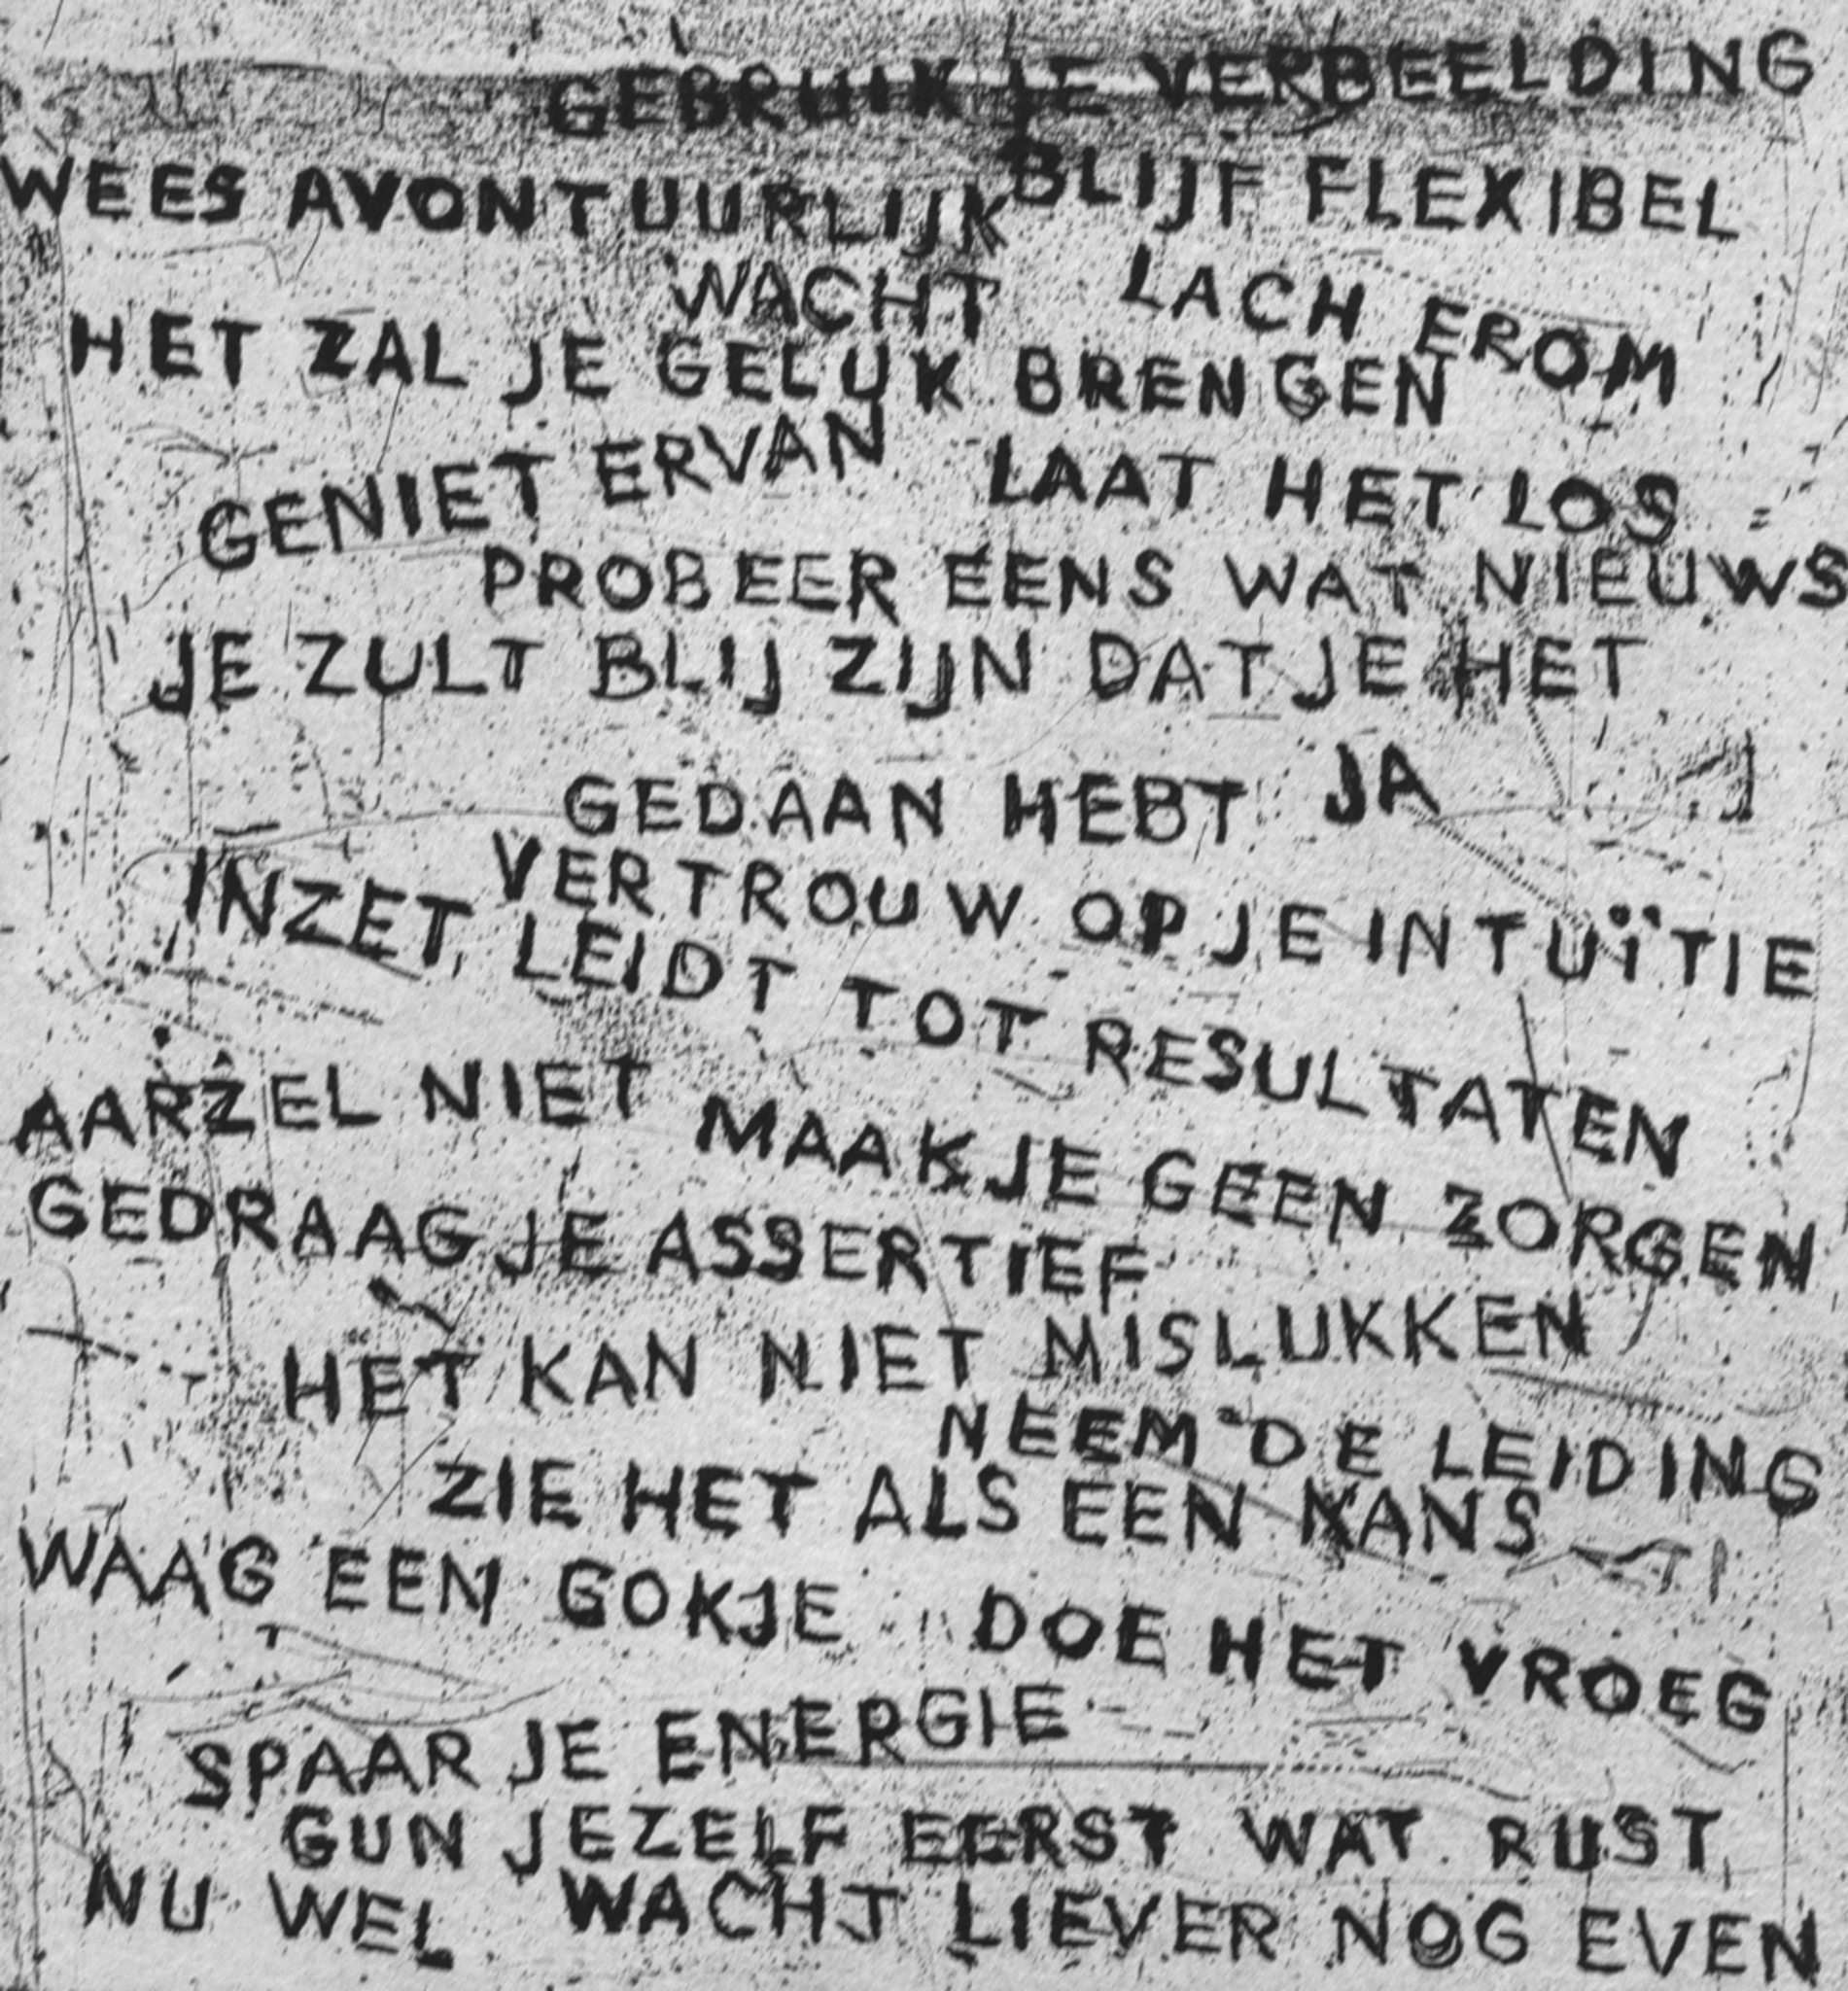 GEBRUIK JE VERBEELDING
WEES AVONTUURLIJK BLIJF FLEXIBEL
WACHT LACH EROM
HET ZAL JE GELUK BRENGEN
GENIET ERVAN LAAT HET LOS
PROBEER EENS WAT NIEUWS
JE ZULT BLIJ ZIJN DAT JE HET
GEDAAN HEBT JA
VERTROUW OP JE INTUÏTIE
INZET LEIDT TOT RESULTATEN
AARZEL NIET MAAK JE GEEN ZORGEN
GEDRAAG JE ASSERTIEF
HET KAN NIET MISLUKKEN
NEEM DE LEIDING
ZIE HET ALS EEN KANS
WAAG EEN GOKJE DOE HET VROEG
SPAAR JE ENERGIE
GUN JEZELF EERST WAT RUST
NU WEL WACHT LIEVER NOG EVEN